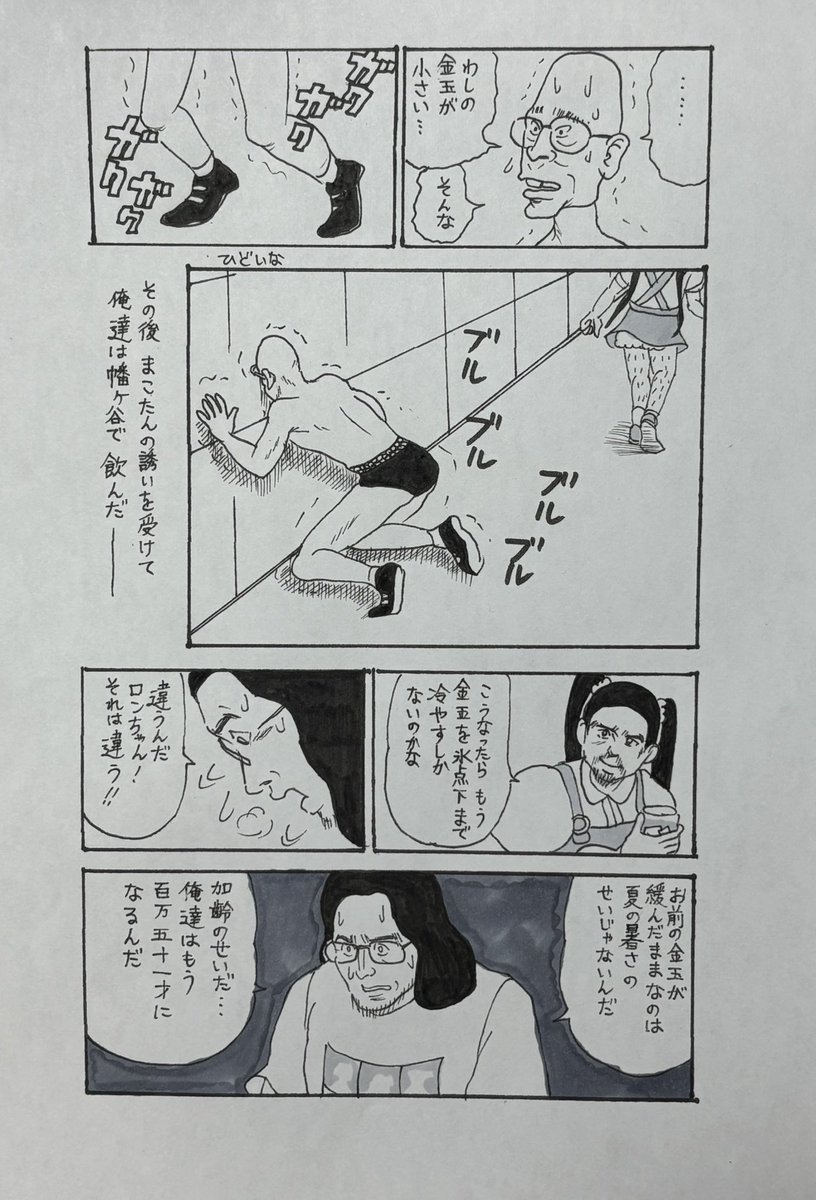 ……
わしの
金玉が
小さい…
そんな
ガク
ガク
ガク
ガク
ガク
ひどいな
ブル
ブル
ブル
ブル
その後 まこたんの誘いを受けて
俺達は幡ヶ谷で 飲んだ──
こうなったら もう
金玉を氷点下まで
冷やすしか
ないのかな
違うんだ
ロンちゃん!
それは違う!!
お前の金玉が
緩んだままなのは
夏の暑さの
せいじゃないんだ
加齢のせいだ…
俺達はもう
百万五十一才に
なるんだ